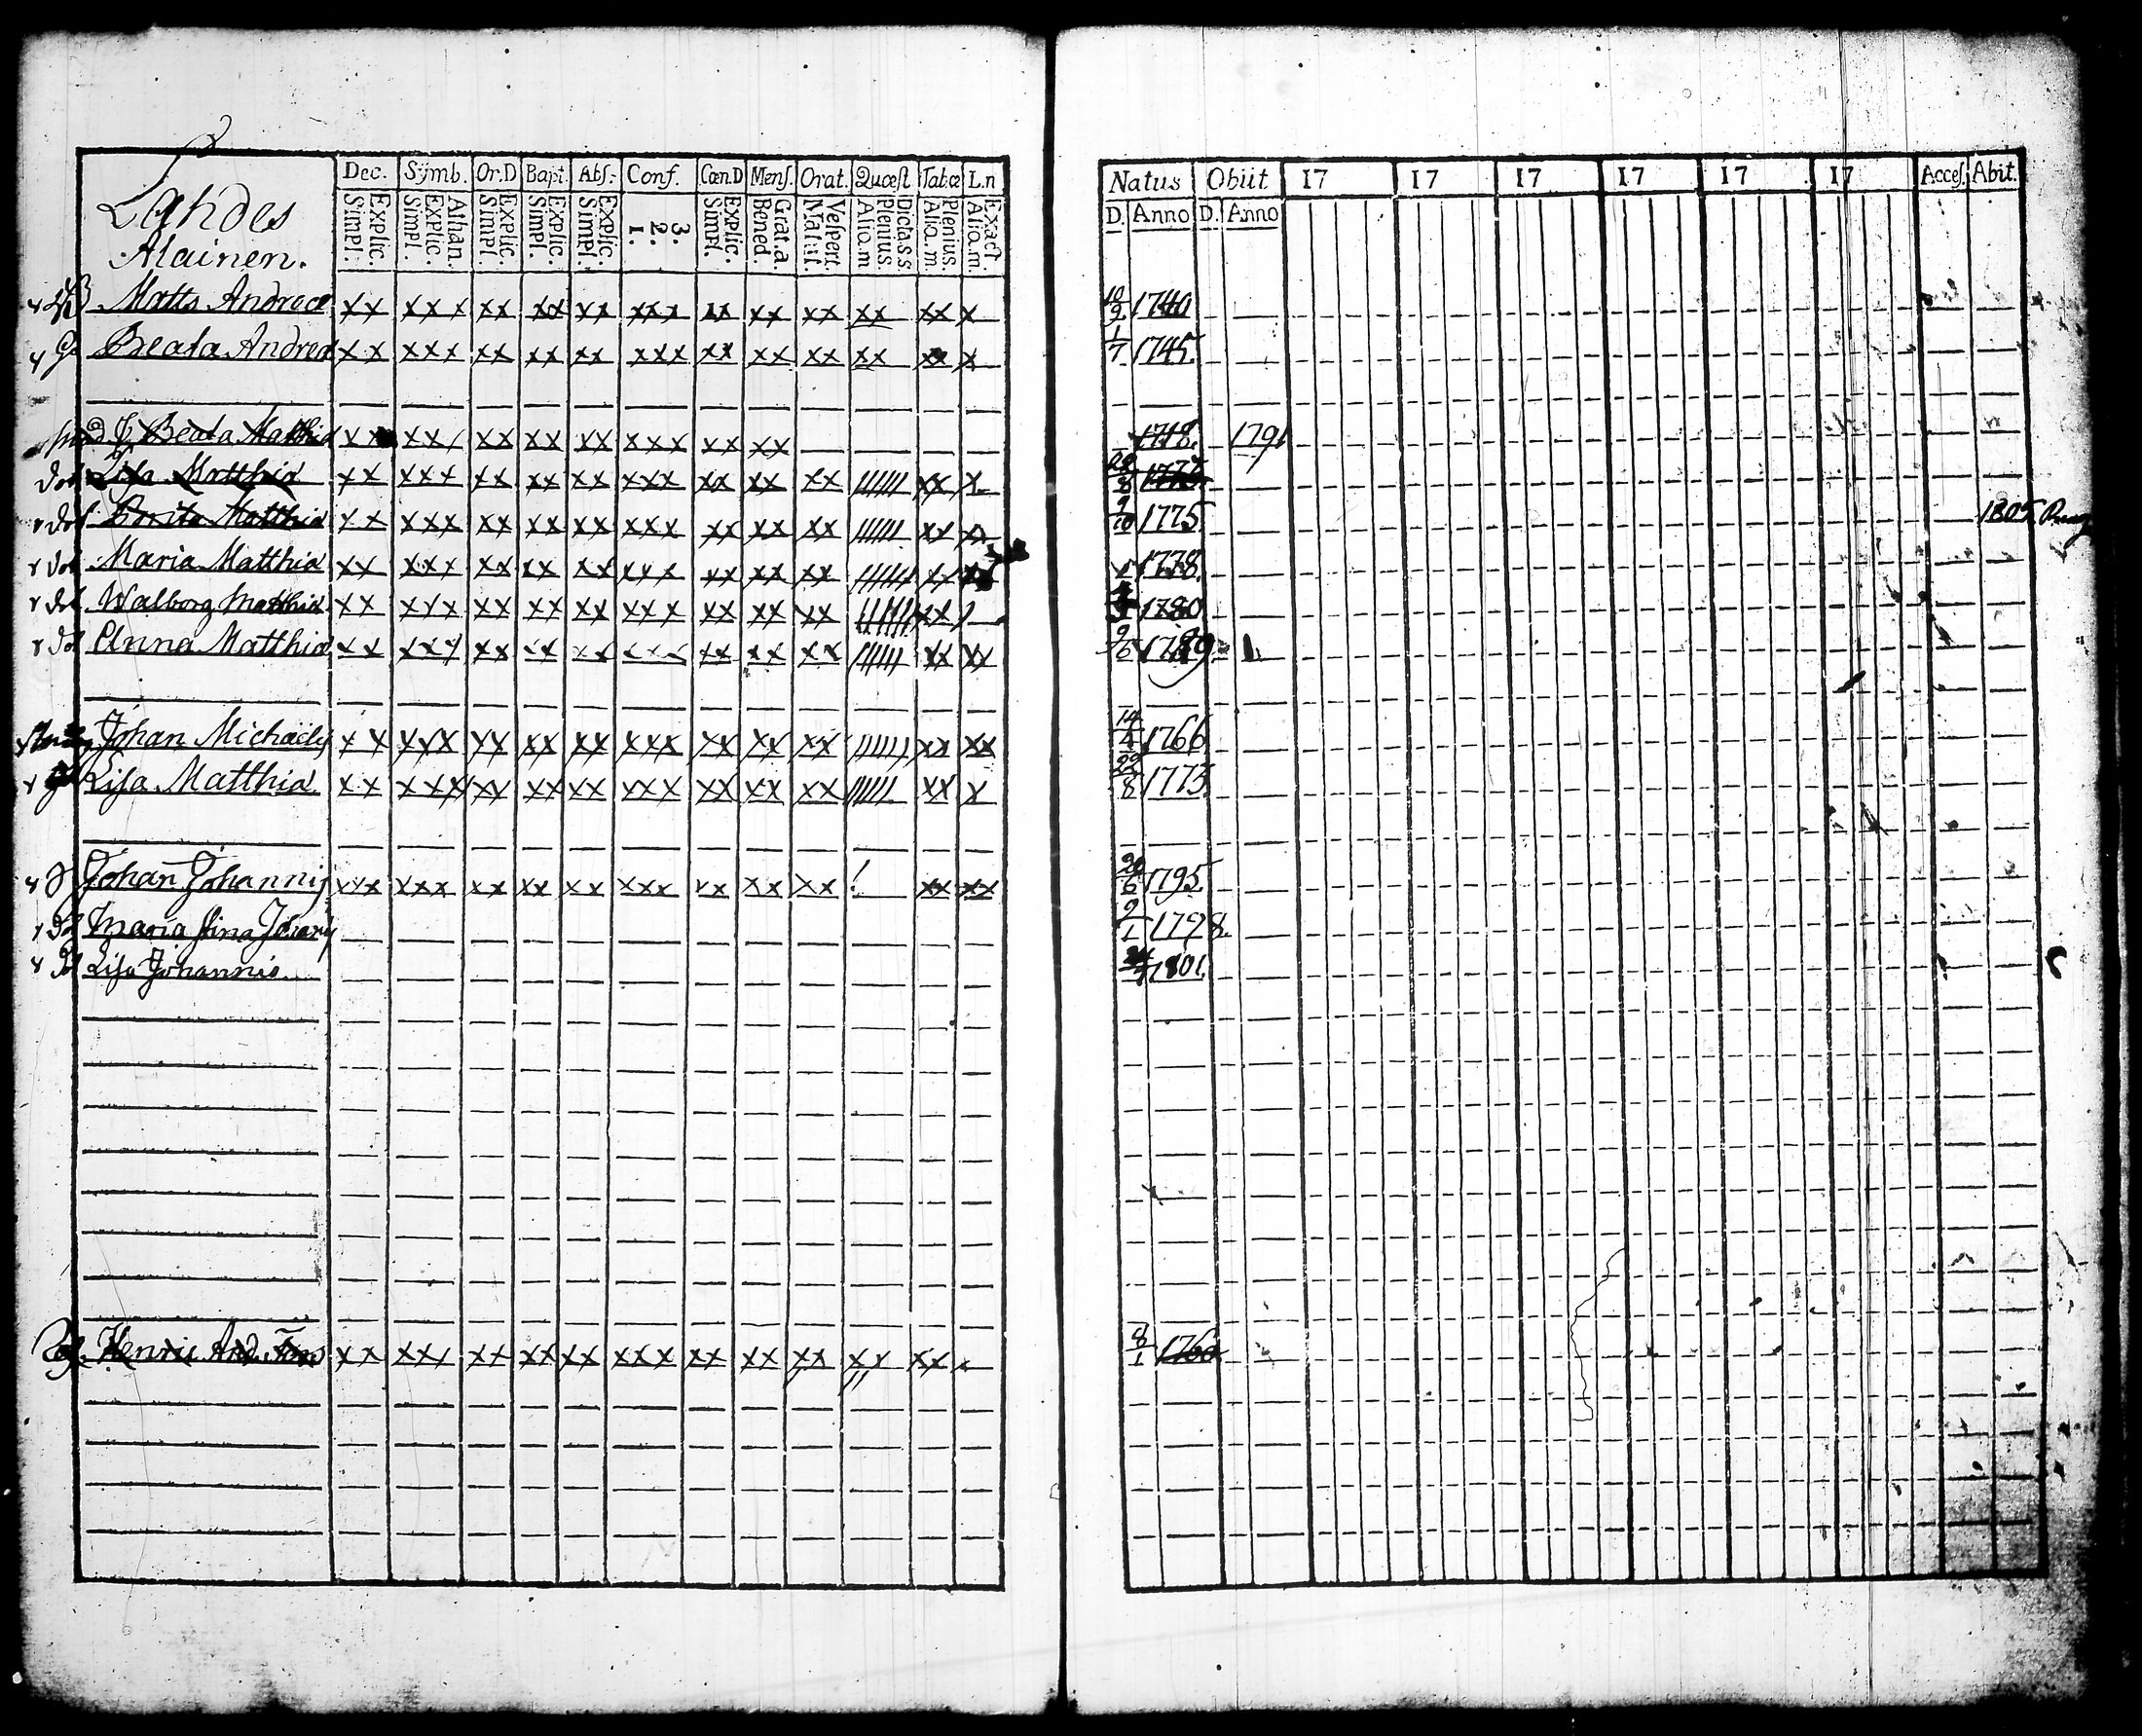 Lahdes
Alainen.
Dec. Symb. Or.D Bapt. Abs: Conf. Cœn.D Mens. Orat. Quæst Tabæ L.n
Explic. Simpl: Athan. Explic. Simpl. Explic. Simpl. Explic. Simpl. Explic. Simpl. 3. 2. 1. Explic. Simpl. Grat.a Bened. Vespert. Matut. Dicta.s.s Plenius. Alio.m Plenius. Alio.m. Exact Alio.m.
Natus Obiit 17 17 17 17 17 17 Acces. Abit.
D. Anno D. Anno
Matts Andreæ xx xxx xx xx xx xxx xx xx xx xx xx x 10/9 1740
Beata Andreæ xx xxx xx xx xx xxx xx xx xx xx xx x 1/7 1745.
Beata Matthiæ xx xxx xx xx xx xxx xx xx 1718. 1791
dot Lisa Matthiæ xx xxx xx xx xx xxx xx xx xx ////// xx x
dot Brita Matthiæ xx xxx xx xx xx xxx xx xx xx ////// xx x 9/10 1775 1805
dot Maria Matthiæ xx xxx xx xx xx xxx xx xx xx ////// xx 1778.
dot Walborg Matthiæ xx xxx xx xx xx xxx xx xx xx ////// xx 1780
dot Anna Matthiæ xx xxx xx xx xx xxx xx xx xx ////// xx xx 9/6 1789
Johan Michaëlis xx xxx xx xx xx xxx xx xx xx ////// xx xx 14/4 1766
Lisa Matthiæ xx xxx xx xx xx xxx xx xx xx ////// xx x 22/8 1773.
Johan Johannis xxx xxx xx xx xx xxx xx xx xx / xx xx 20/6 1795.
Maria Stina 9/1 1798.
Lisa Johannis 1801.
Henric And. xx xxx xx xx xx xxx xx xx xx xx xx x 8/1 1760